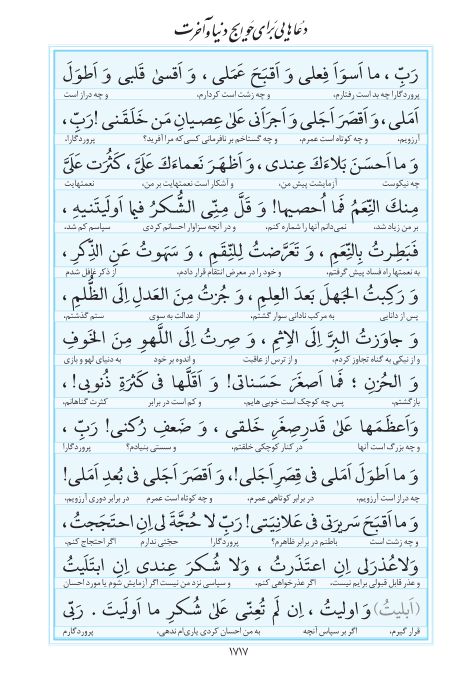 دعاهایی برای حوایج دنیا و آخرت
رَبِّ ، ما اَسوَاَ فِعلی وَ اَقبَحَ عَمَلی ، وَ اَقسیٰ قَلبی وَ اَطوَلَ
پروردگارا چه بد است رفتارم، و چه زشت است کردارم، و چه دراز است
اَمَلی، وَ اَقصَرَ اَجَلی وَ اَجرَاَنی عَلیٰ عِصیانِ مَن خَلَقَنی !رَبِّ ،
آرزویم، و چه کوتاه است عمرم، و چه گستاخم بر نافرمانی کسی که مرا آفرید؟ پروردگارا،
وَ ما اَحسَنَ بَلاءَكَ عِندی ، وَ اَظهَرَ نَعماءَكَ عَلَیَّ ، کَثُرَت عَلَیَّ
چه نیکوست آزمایشت پیش من، و آشکار است نعمتهایت بر من، نعمتهایت
مِنكَ النِّعَمُ فَما اُحصیها! وَ قَلَّ مِنِّی الشُّکرُ فیما اَولَیتَنیهِ ،
بر من زیاد شد، نمی‌دانم آنها را شماره کنم، و در آنچه سزاوار احسانم کردی سپاسم کم شد،
فَبَطِرتُ بِالنِّعَمِ ، وَ تَعَرَّضتُ لِلنِّقَمِ ، وَ سَهَوتُ عَنِ الذِّکرِ ،
به نعمتها راه فساد پیش گرفتم، و خود را در معرض انتقام قرار دادم، از ذکر غافل شدم
وَ رَکِبتُ الجَهلَ بَعدَ العِلمِ ، وَ جُزتُ مِنَ العَدلِ اِلَی الظُّلمِ ،
پس از دانایی به مرکب نادانی سوار گشتم، از عدالت به سوی ستم گذشتم،
وَ جاوَزتُ البِرَّ اِلَی الاِثمِ ، وَ صِرتُ اِلَی اللَّهوِ مِنَ الخَوفِ
و از نیکی به گناه تجاوز کردم، و از ترس از عاقبت و اندوه بر خود به دنیای لهو و بازی
وَ الحُزنِ ؛ فَما اَصغَرَ حَسَناتی! وَ اَقَلَّها فی کَثرَةِ ذُنوبی! ،
بازگشتم، پس چه کوچک است خوبی هایم، و کم است در برابر کثرت گناهانم،
وَ اَعظَمَها عَلیٰ قَدرِ صِغَرِ خَلقی ، وَ ضَعفِ رُکنی! رَبِّ ،
و چه بزرگ است آنها در کنار کوچکی خلقتم، و سستی بنیادم؟ پروردگارا
وَ ما اَطوَلَ اَمَلی فی قِصَرِ اَجَلی!، وَ اَقصَرَ اَجَلی فی بُعدِ اَمَلی!
چه دراز است آرزویم، در برابر کوتاهی عمرم، و چه کوتاه است عمرم در برابر دوری آرزویم،
وَ ما اَقبَحَ سَریرَتی فی عَلانِیَتی! رَبِّ لا حُجَّةَ لی اِنِ احتَجَجتُ ،
و چه زشت است باطنم در برابر ظاهرم؟ پروردگارا حجّتی ندارم اگر احتجاج کنم،
وَلا عُذرَ لی اِنِ اعتَذَرتُ ، وَلا شُکرَ عِندی اِنِ ابتَلَیتُ
و عذر قابل قبولی برایم نیست، اگر عذرخواهی کنم، و سپاسی نزد من نیست اگر آزمایش شوم یا مورد احسان
(اُبلیتُ) وَ اولیتُ ، اِن لَم تُعِنّی عَلیٰ شُکرِ ما اَولَیتَ . رَبّی
قرار گیرم، اگر بر سپاس آنچه به من احسان کردی یاری‌ام ندهی، پروردگارم
۱۷۱۷